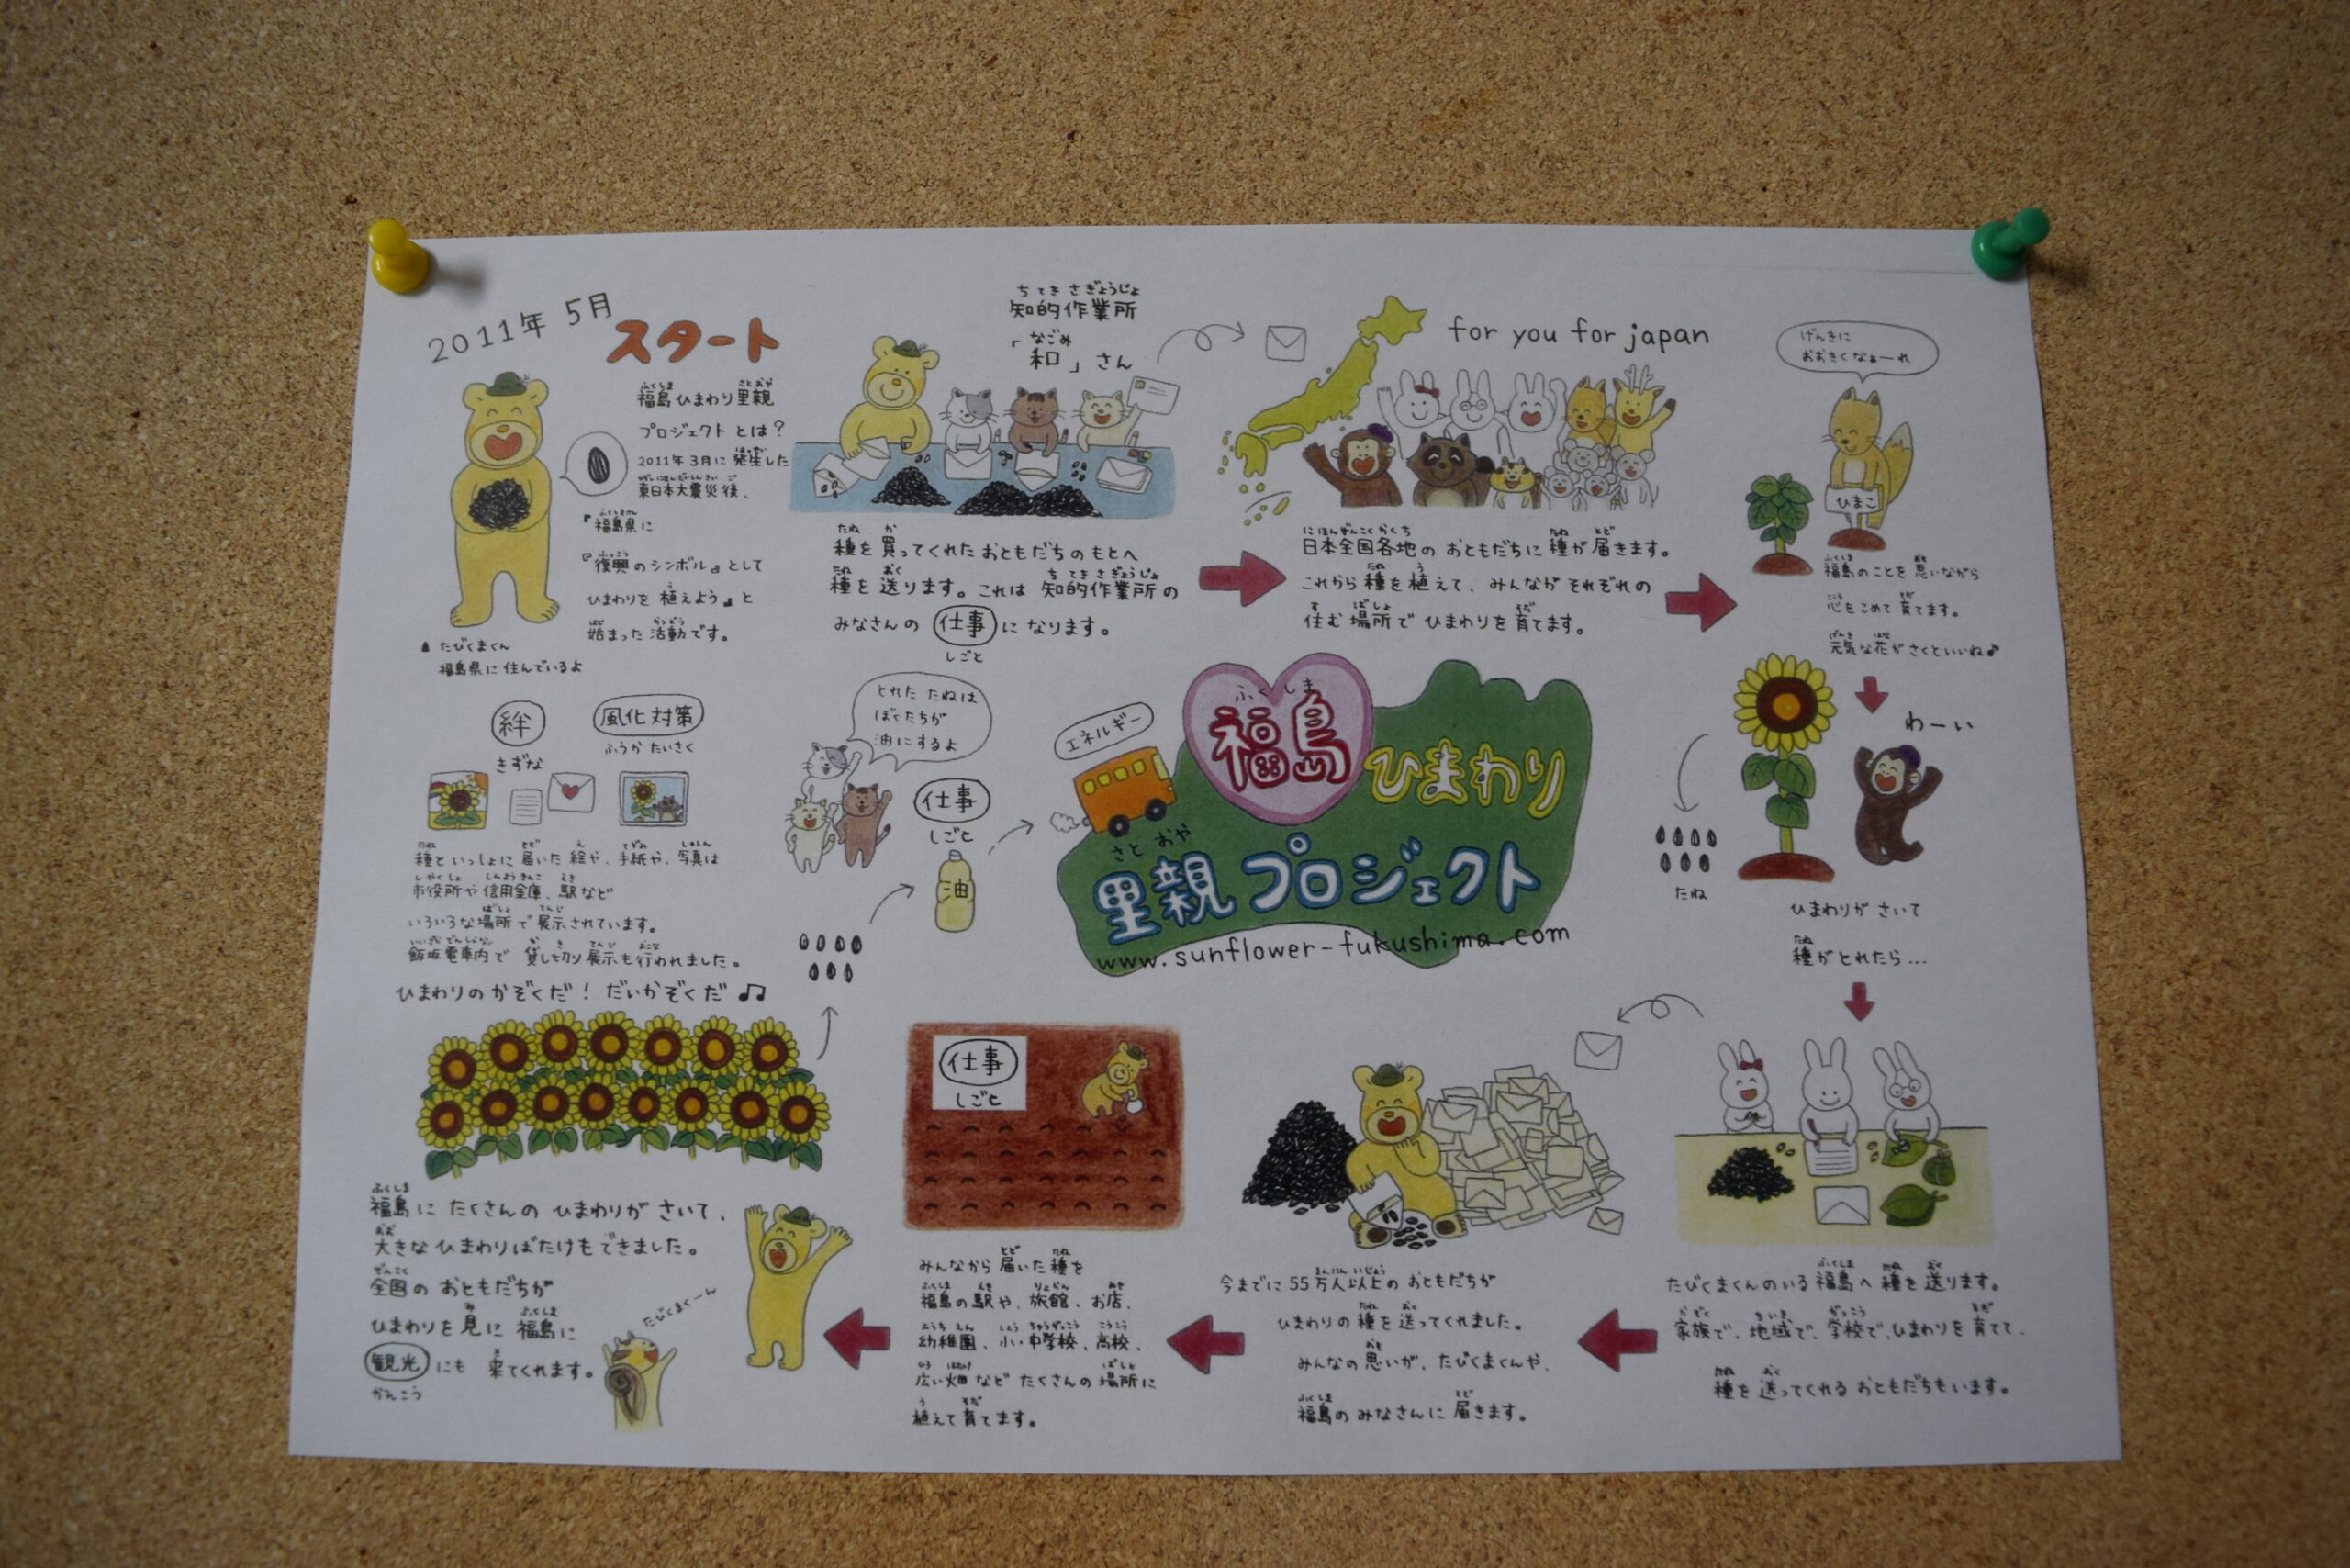 2011年 5月
スタート
福島ひまわり里親
プロジェクト とは？
2011年3月に 発生した
東日本大震災後、
『福島県に
『復興のシンボル』として
ひまわりを 植えよう』と
始まった 活動です。
▲ たびくまくん
福島県に 住んでいるよ
ちてき さぎょうじょ
知的作業所
なごみ
「和」さん
種を 買ってくれた おともだちの もとへ
種を 送ります。これは 知的作業所の
みなさんの 仕事 に なります。
しごと
for you for japan
日本全国各地の おともだちに 種が 届きます。
これから 種を 植えて、みんなが それぞれの
住む 場所で ひまわりを 育てます。
げんきに
おおきくなぁーれ
ひまこ
福島のことを 思いながら
心をこめて 育てます。
元気な花が さくといいね♪
わーい
たね
ひまわりが さいて
種が とれたら…
たびくまくんのいる 福島へ 種を 送ります。
家族で、地域で、学校で、ひまわりを 育てて、
種を 送ってくれる おともだちもいます。
今までに 55万人以上の おともだちが
ひまわりの 種を 送ってくれました。
みんなの 思いが、たびくまくんや、
福島の みなさんに 届きます。
仕事
しごと
みんなから 届いた 種を
福島の駅や、旅館、お店、
幼稚園、小・中学校、高校、
広い畑 など たくさんの 場所に
植えて 育てます。
福島に たくさんの ひまわりが さいて、
大きな ひまわりばたけも できました。
全国の おともだちが
ひまわりを 見に 福島に
観光 にも 来てくれます。
かんこう
たびくまくーん
絆
きずな
風化対策
ふうか たいさく
種と いっしょに 届いた 絵や、手紙や、写真は
市役所や 信用金庫、駅など
いろいろな 場所で 展示されています。
飯坂電車内で 貸し切り 展示も 行われました。
ひまわりの かぞくだ！ だいかぞくだ ♫
とれた たねは
ぼくたちが
油にするよ
仕事
しごと
油
エネルギー
ふくしま
福島 ひまわり
さと おや
里親 プロジェクト
www.sunflower-fukushima.com